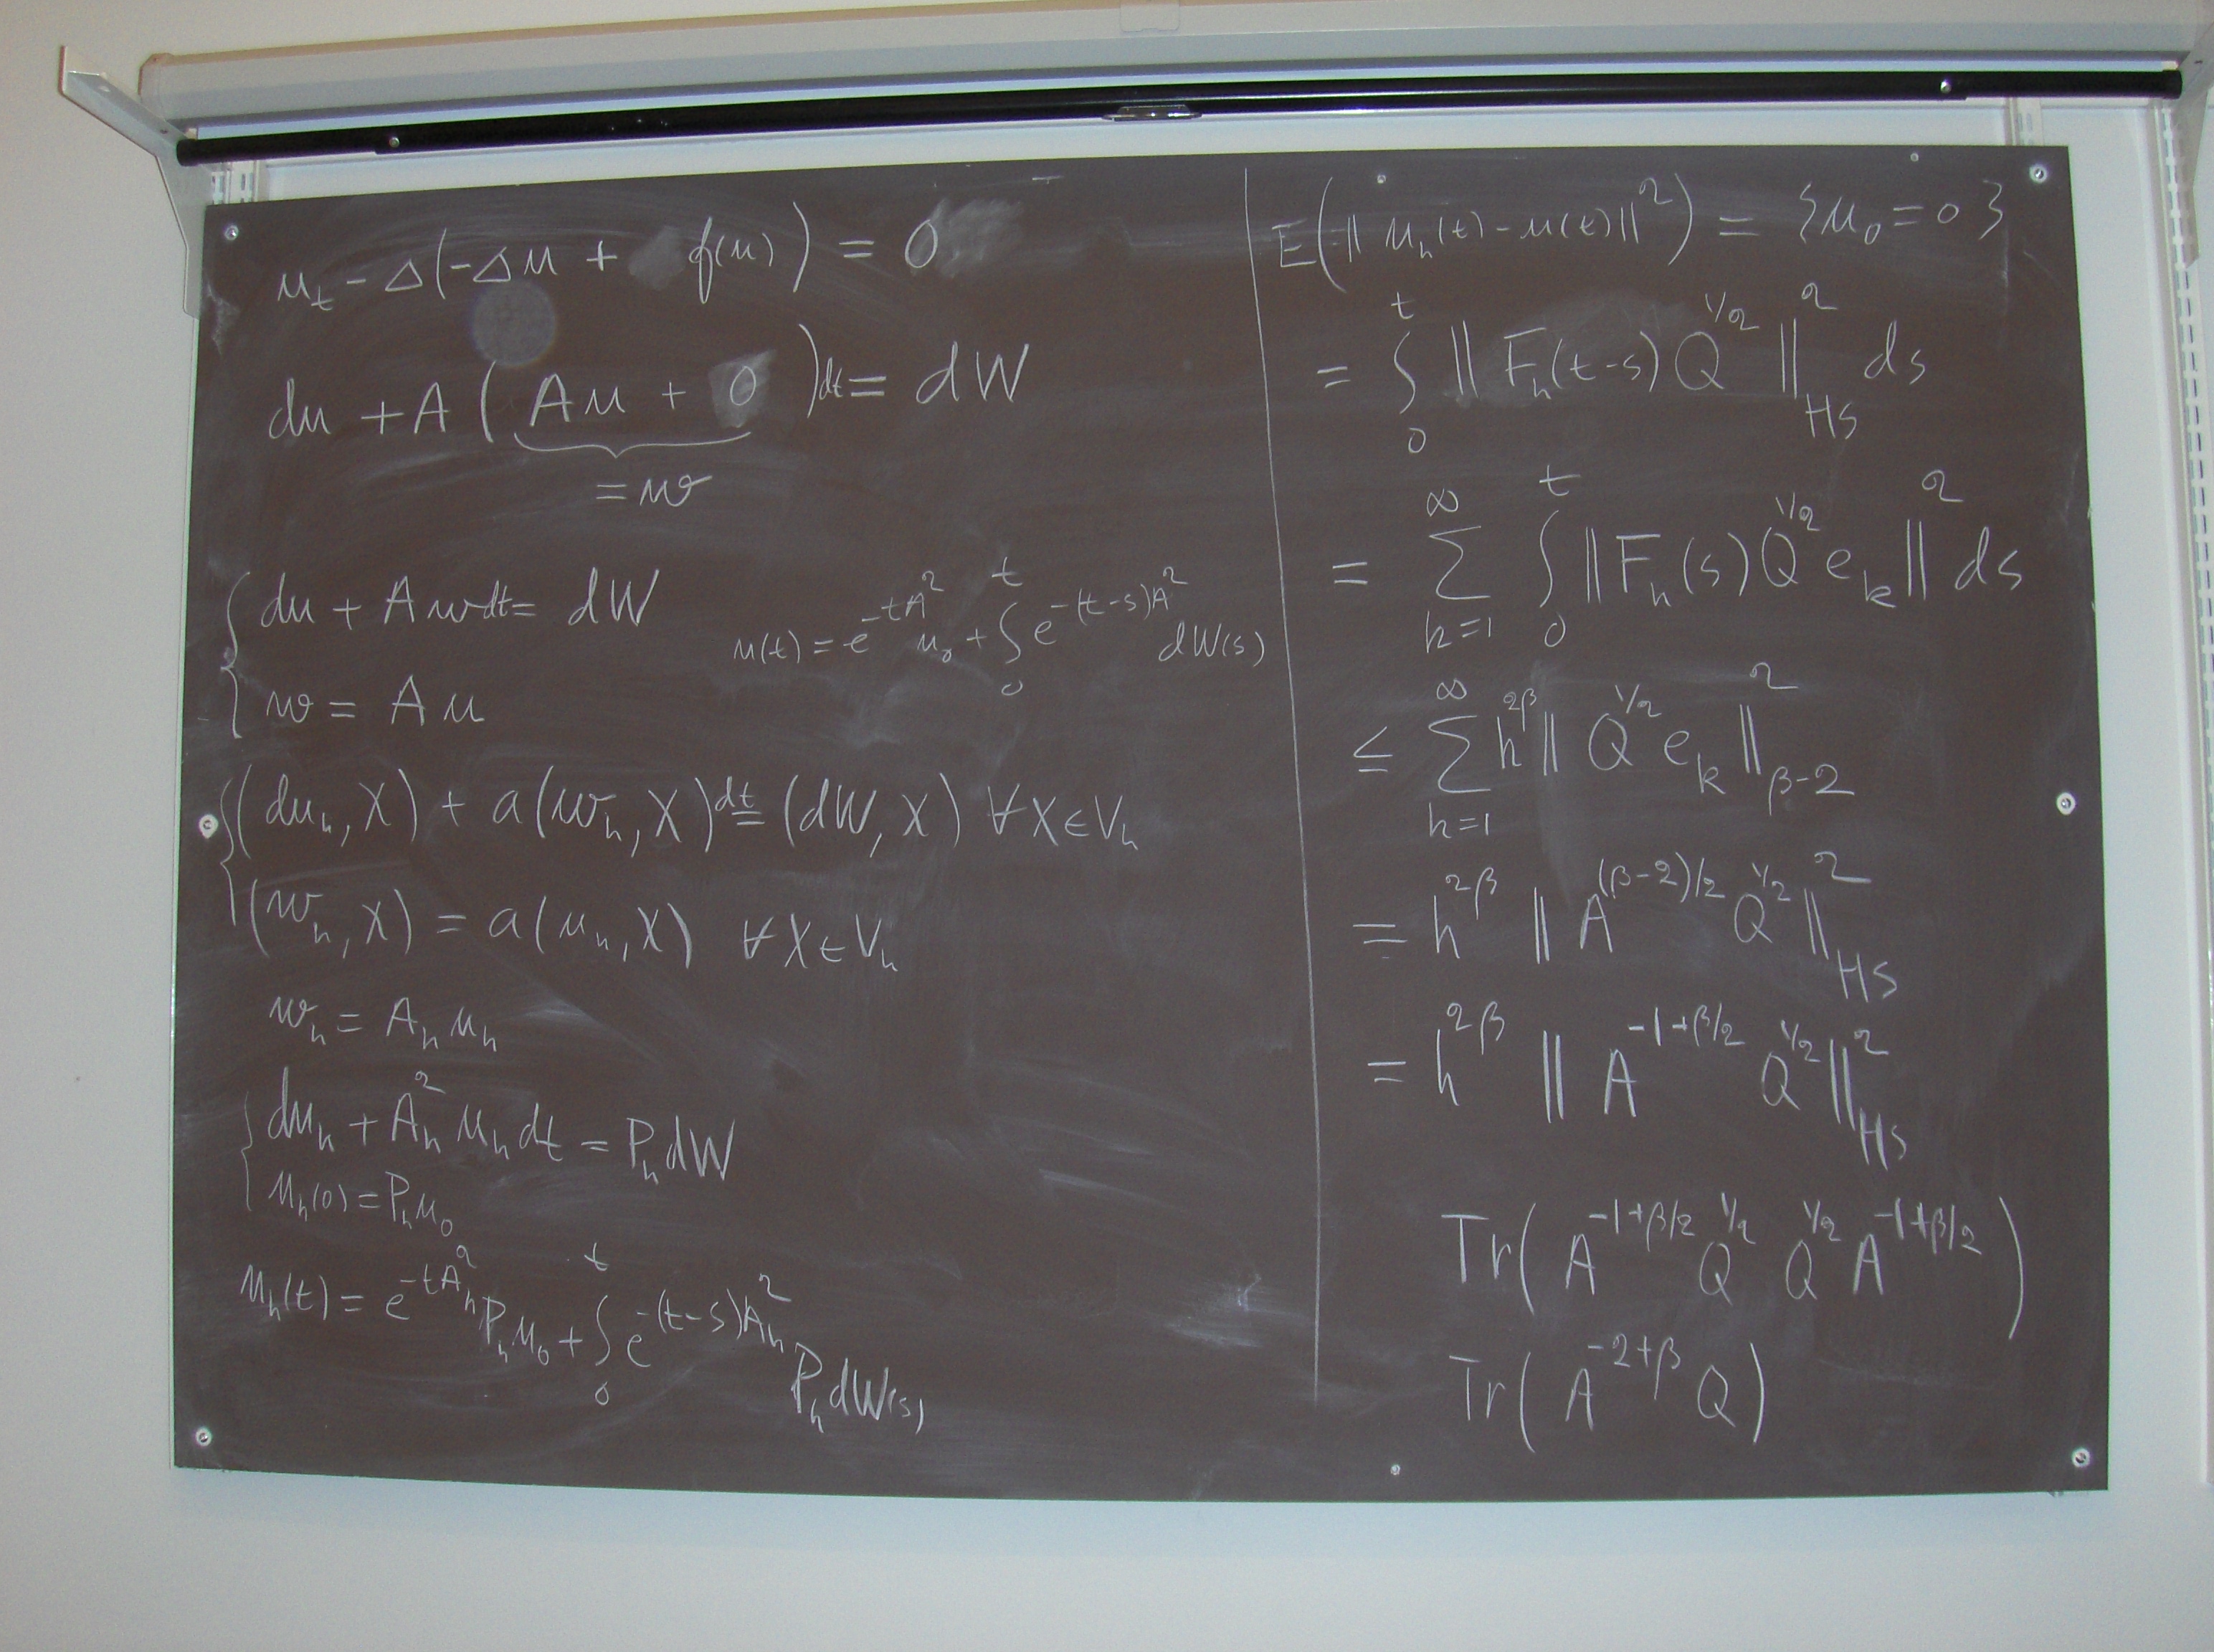 u_t - Δ(-Δu + f(u)) = 0
du + A(Au + 0)dt = dW
= w
du + Aw dt = dW
u(t) = e^{-tA^2} u_0 + ∫_0^t e^{-(t-s)A^2} dW(s)
w = Au
(du_h, χ) + a(w_h, χ)dt = (dW, χ) ∀χ∈V_h
(w_h, χ) = a(u_h, χ) ∀χ∈V_h
w_h = A_h u_h
du_h + A_h^2 u_h dt = P_h dW
u_h(0) = P_h u_0
u_h(t) = e^{-tA_h^2} P_h u_0 + ∫_0^t e^{-(t-s)A_h^2} P_h dW(s)
E(‖u_h(t) - u(t)‖^2) = {u_0 = 0}
= ∫_0^t ‖F_h(t-s) Q^{1/2}‖_{HS}^2 ds
= ∑_{k=1}^∞ ∫_0^t ‖F_h(s) Q^{1/2} e_k‖^2 ds
≤ ∑_{k=1}^∞ h^{2β} ‖Q^{1/2} e_k‖_{β-2}^2
= h^{2β} ‖A^{(β-2)/2} Q^{1/2}‖_{HS}^2
= h^{2β} ‖A^{-1+β/2} Q^{1/2}‖_{HS}^2
Tr(A^{-1+β/2} Q^{1/2} Q^{1/2} A^{-1+β/2})
Tr(A^{-2+β} Q)